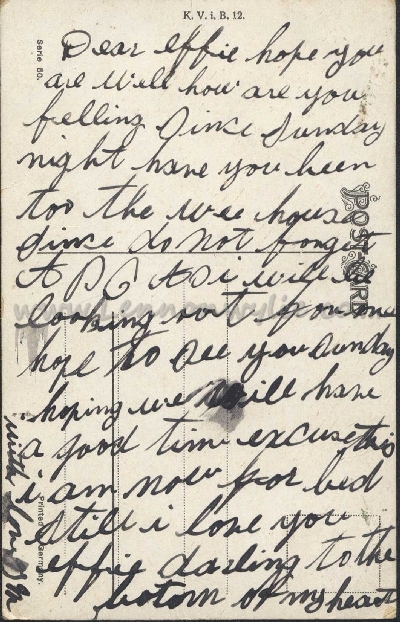 K. V. i. B. 12.
Serie 50.
Dear effie hope you
are well how are you
felling Since Sunday
night have you been
too the wee house
Since do not forget
A P C As i will be
looking out for one
hope to See you Sunday
hoping we will have
a good time excuse this
i am now for bed
Still i love you
effie darling to the
botom of my heart
with love
POST CARD
Printed in Germany.
www.lennonwylie.co.uk